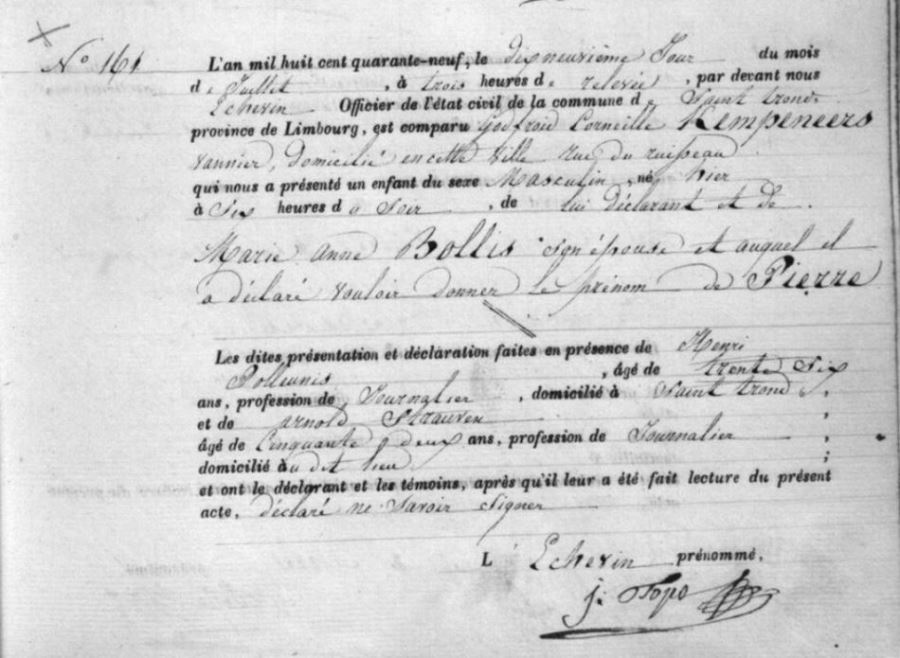 N° 161
L'an mil huit cent quarante-neuf, le dixneuvième Jour du mois
d. Juillet, à trois heures de relevée, par devant nous
Echevin Officier de l'état civil de la commune d. Saint trond.
province de Limbourg, est comparu Godfroid Corneille Kempeneers
vannier, domicilié en cette ville rue du ruisseau
qui nous a présenté un enfant du sexe Masculin, né hier
à Six heures d u Soir, de lui déclarant et de
Marie anne Bollis Son épouse et auquel il
a déclaré vouloir donner le prénom de Pierre
Les dites présentation et déclaration faites en présence de Henri
Polleunis, âgé de trente Six
ans, profession de Journalier, domicilié à Saint trond,
et de arnold Strauven
âgé de Cinquante deux ans, profession de Journalier,
domicilié au dit lieu;
et ont le déclarant et les témoins, après qu'il leur a été fait lecture du présent
acte, déclaré ne Savoir Signer
L' Echevin prénommé,